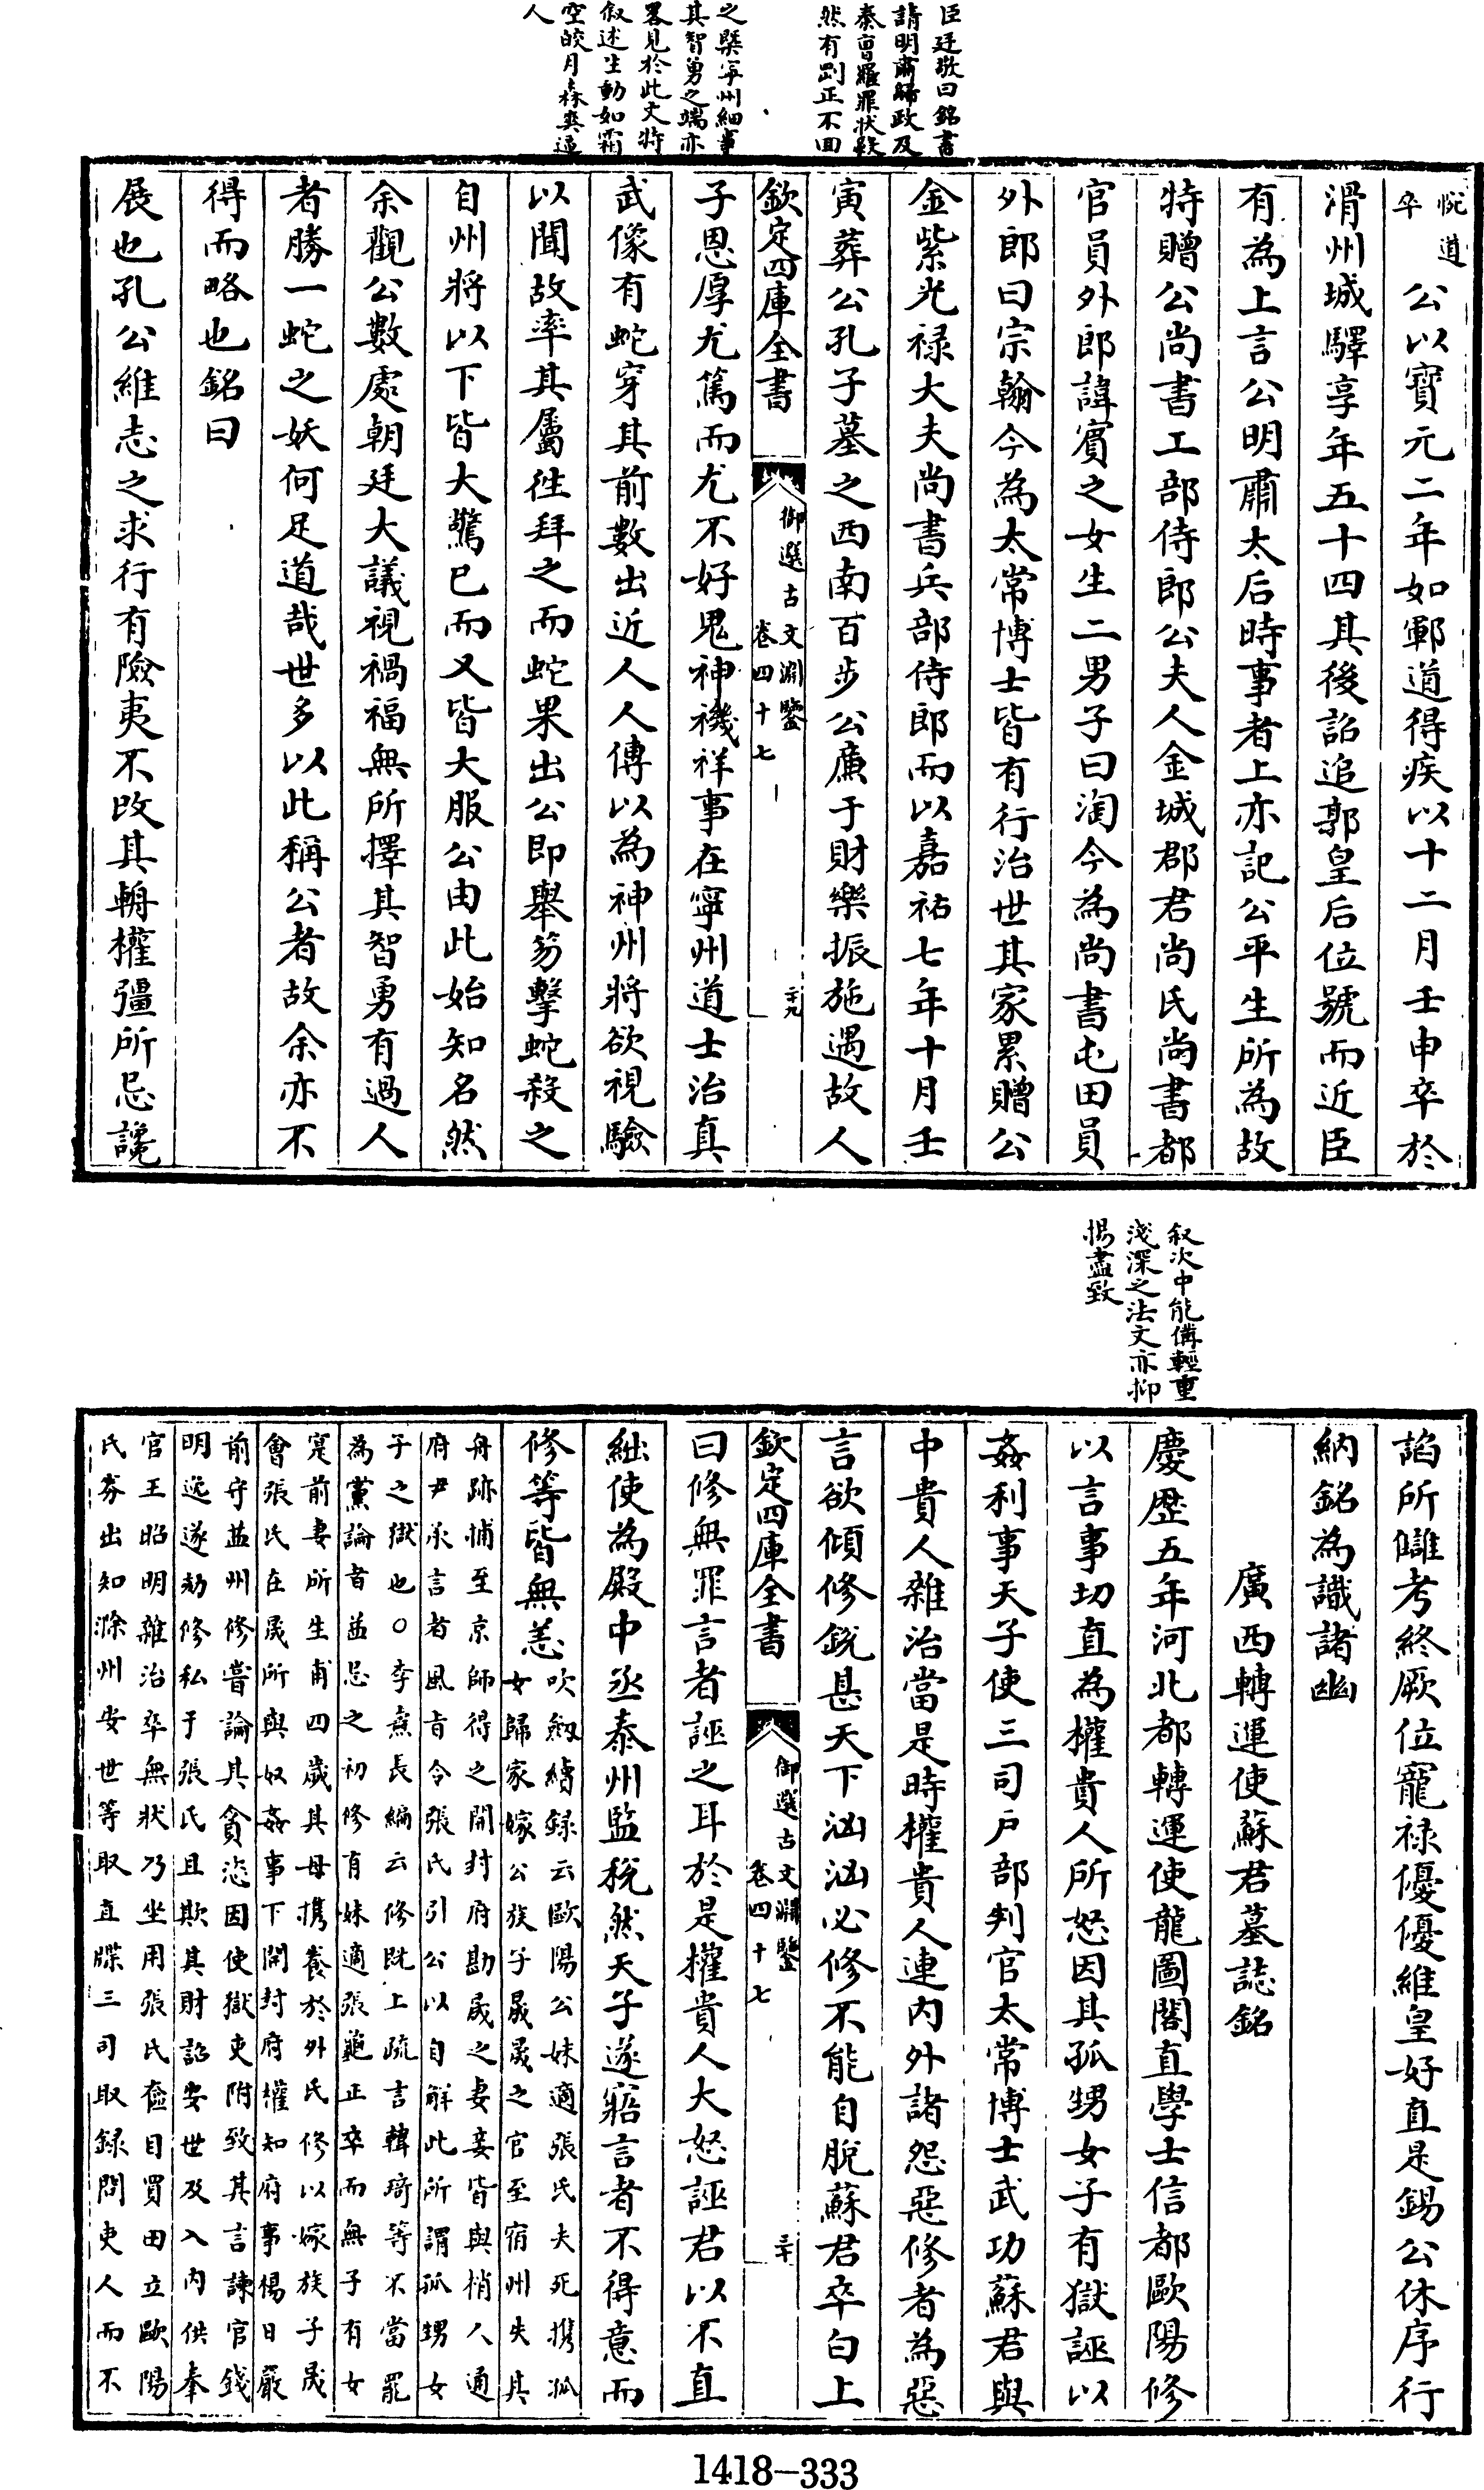 臣廷敬曰銘書
請明肅歸政及
秦曹羅罪狀毅
然有剛正不回
之槩寧州細事
其智勇之端亦
畧見於此文將
叙述生動如霜
空皎月森爽逼
人
悅道
卒
公以寶元二年如鄆道得疾以十二月壬申卒於
滑州城驛享年五十四其後詔追郭皇后位號而近臣
有為上言公明肅太后時事者上亦記公平生所為故
特贈公尚書工部侍郎公夫人金城郡君尚氏尚書都
官員外郎諱賓之女生二男子曰淘今為尚書屯田員
外郎曰宗翰今為太常博士皆有行治世其家累贈公
金紫光祿大夫尚書兵部侍郎而以嘉祐七年十月壬
寅葬公孔子墓之西南百步公廉于財樂振施遇故人
欽定四庫全書
御選古文淵鑒
卷四十七
二十九
子恩厚尤篤而尤不好鬼神禨祥事在寧州道士治真
武像有蛇穿其前數出近人人傳以為神州將欲視驗
以聞故率其屬徃拜之而蛇果出公即舉笏擊蛇殺之
自州將以下皆大驚已而又皆大服公由此始知名然
余觀公數處朝廷大議視禍福無所擇其智勇有過人
者勝一蛇之妖何足道哉世多以此稱公者故余亦不
得而略也銘曰
展也孔公維志之求行有險夷不改其輈權彊所忌讒
叙次中能備輕重
淺深之法文亦抑
揚盡致
諂所讎考終厥位寵祿優優維皇好直是錫公休序行
納銘為識諸幽
廣西轉運使蘇君墓誌銘
慶歷五年河北都轉運使龍圖閣直學士信都歐陽修
以言事切直為權貴人所怒因其孤甥女子有獄誣以
姦利事天子使三司戶部判官太常博士武功蘇君與
中貴人雜治當是時權貴人連內外諸怨惡修者為惡
言欲傾修銳甚天下洶洶必修不能自脫蘇君卒白上
欽定四庫全書
御選古文淵鑒
卷四十七
三十
曰修無罪言者誣之耳於是權貴人大怒誣君以不直
絀使為殿中丞泰州監稅然天子遂寤言者不得意而
修等皆無恙
吹劍續錄云歐陽公妹適張氏夫死携孤
女歸家嫁公族子晟晟之官至宿州失其
舟跡捕至京師得之開封府勘晟之妻妾皆與梢人通
府尹承言者風旨令張氏引公以自解此所謂孤甥女
子之獄也○李燾長編云修既上疏言韓琦等不當罷
為黨論者益忌之初修有妹適張龜正卒而無子有女
寔前妻所生甫四歲其母携養於外氏修以嫁族子晟
會張氏在晟所與奴姦事下開封府權知府事楊日嚴
前守益州修嘗論其貪恣因使獄吏附致其言諫官錢
明逸遂劾修私于張氏且欺其財詔安世及入內供奉
官王昭明雜治卒無狀乃坐用張氏奩目買田立歐陽
氏券出知滁州安世等取直牒三司取錄問吏人而不
1418—333